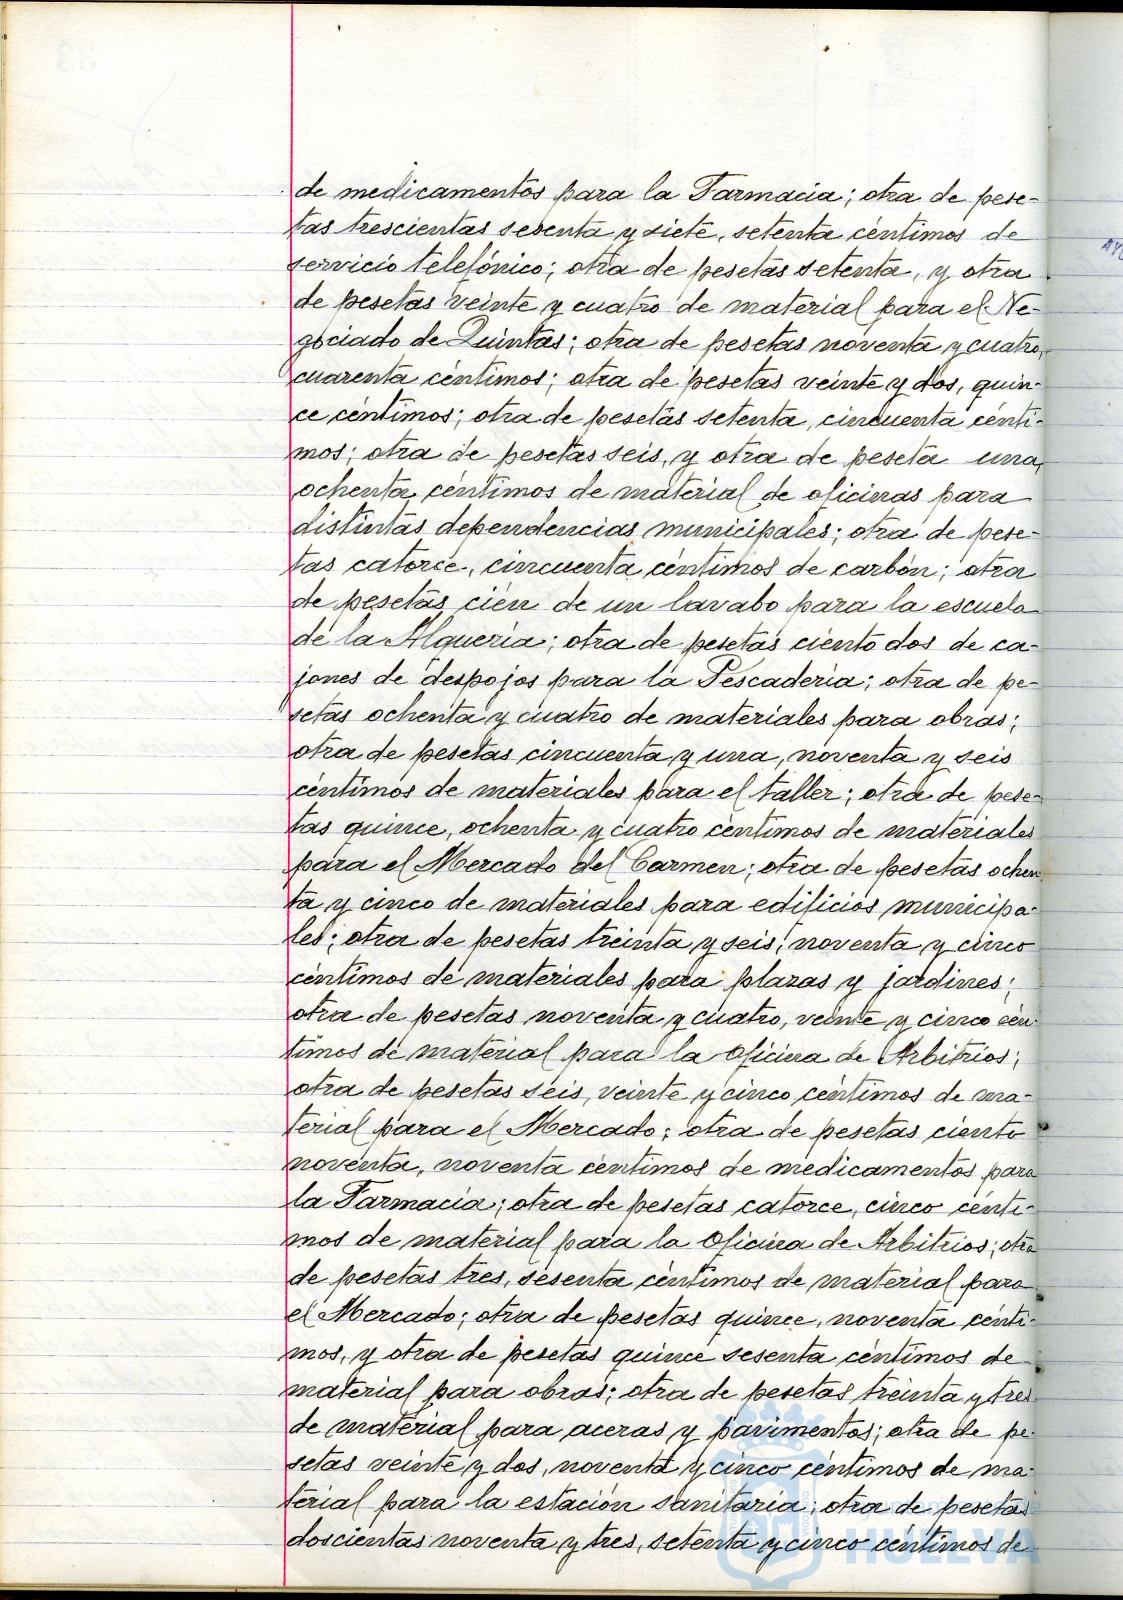 de medicamentos para la Farmacia; otra de pese-
tas trescientas sesenta y siete, setenta céntimos de
servicio telefónico; otra de pesetas setenta, y otra
de pesetas veinte y cuatro de material para el Ne-
gociado de Quintas; otra de pesetas noventa y cuatro,
cuarenta céntimos; otra de pesetas veinte y dos, quin-
ce céntimos; otra de pesetas setenta, cincuenta cénti-
mos; otra de pesetas seis, y otra de peseta una,
ochenta céntimos de material de oficinas para
distintas dependencias municipales; otra de pese-
tas catorce, cincuenta céntimos de carbón; otra
de pesetas cien de un lavabo para la escuela
de la Alquería; otra de pesetas ciento dos de ca-
jones de despojos para la Pescadería; otra de pe-
setas ochenta y cuatro de materiales para obras;
otra de pesetas cincuenta y una, noventa y seis
céntimos de materiales para el taller; otra de pese-
tas quince, ochenta y cuatro céntimos de materiales
para el Mercado del Carmen; otra de pesetas ochen
ta y cinco de materiales para edificios municipa-
les; otra de pesetas treinta y seis, noventa y cinco
céntimos de materiales para plazas y jardines;
otra de pesetas noventa y cuatro, veinte y cinco cén-
timos de material para la Oficina de Arbitrios;
otra de pesetas seis, veinte y cinco céntimos de ma-
terial para el Mercado; otra de pesetas ciento
noventa, noventa céntimos de medicamentos para
la Farmacia; otra de pesetas catorce, cinco cénti-
mos de material para la Oficina de Arbitrios; otra
de pesetas tres, sesenta céntimos de material para
el Mercado; otra de pesetas quince, noventa cénti-
mos, y otra de pesetas quince sesenta céntimos de
material para obras; otra de pesetas treinta y tres
de material para aceras y pavimentos; otra de pe-
setas veinte y dos, noventa y cinco céntimos de ma-
terial para la estación sanitaria; otra de pesetas
doscientas noventa y tres, setenta y cinco céntimos de
HUELVA